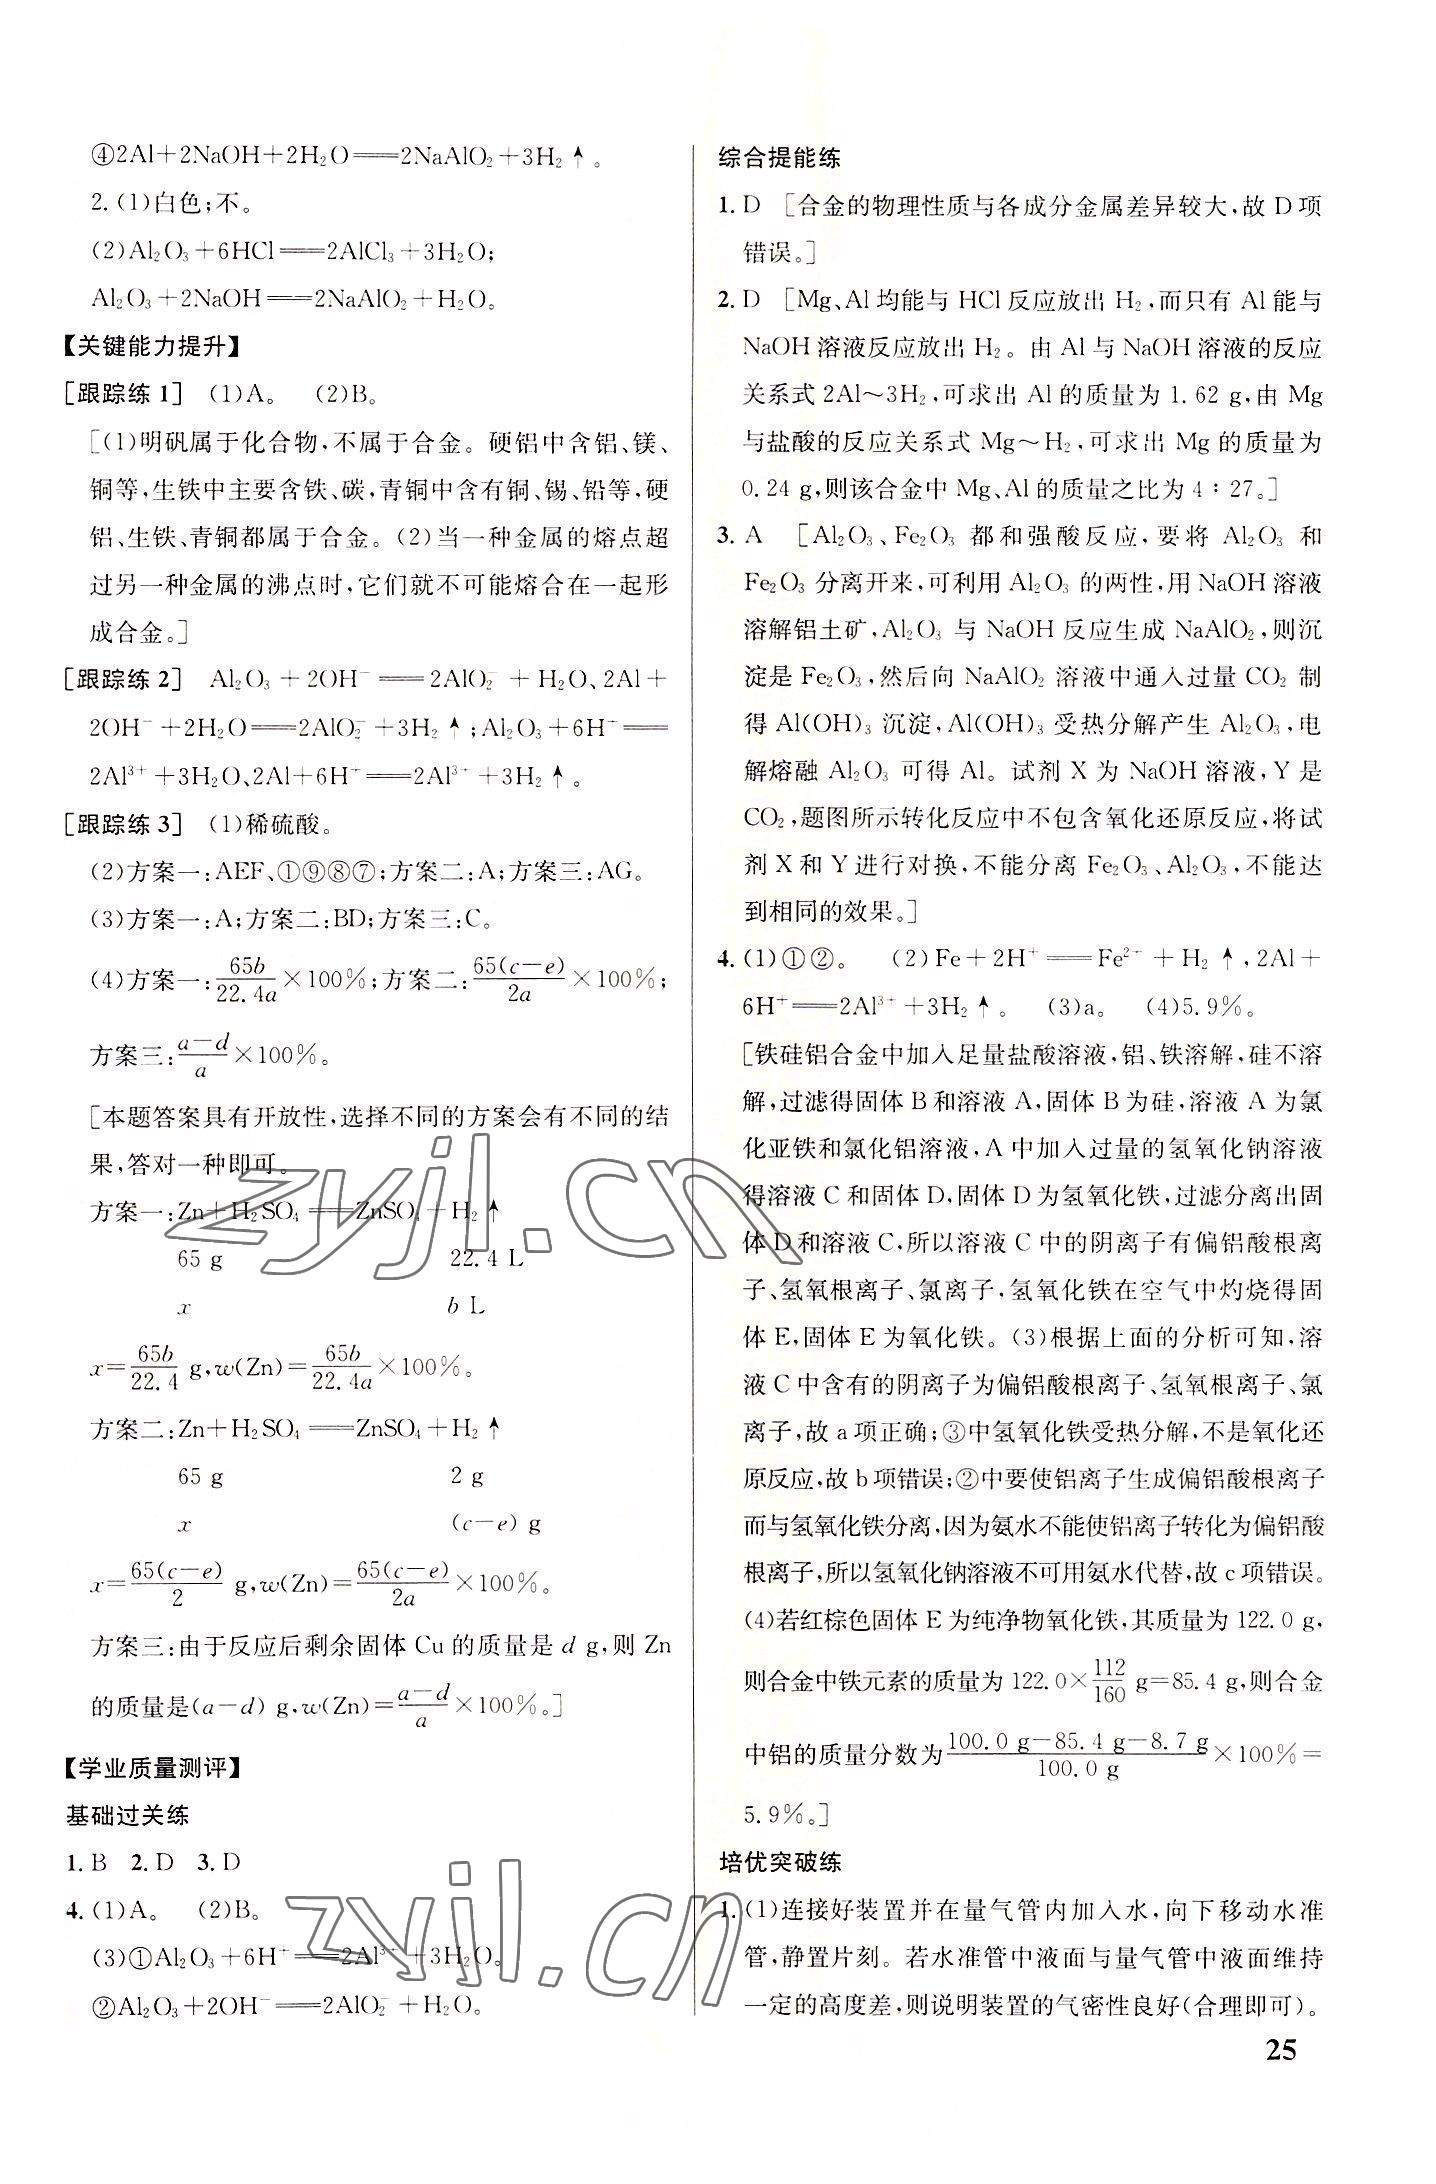 ④2Al+2NaOH+2H₂O══2NaAlO₂+3H₂↑。
2.(1)白色;不。
(2)Al₂O₃+6HCl══2AlCl₃+3H₂O;
Al₂O₃+2NaOH══2NaAlO₂+H₂O。
【关键能力提升】
[跟踪练1] (1)A。 (2)B。
[(1)明矾属于化合物,不属于合金。硬铝中含铝、镁、
铜等,生铁中主要含铁、碳,青铜中含有铜、锡、铅等,硬
铝、生铁、青铜都属于合金。(2)当一种金属的熔点超
过另一种金属的沸点时,它们就不可能熔合在一起形
成合金。]
[跟踪练2] Al₂O₃+2OH⁻══2AlO₂⁻+H₂O、2Al+
2OH⁻+2H₂O══2AlO₂⁻+3H₂↑;Al₂O₃+6H⁺══
2Al³⁺+3H₂O、2Al+6H⁺══2Al³⁺+3H₂↑。
[跟踪练3] (1)稀硫酸。
(2)方案一:AEF、①⑨⑧⑦;方案二:A;方案三:AG。
(3)方案一:A;方案二:BD;方案三:C。
(4)方案一:65b/22.4a×100%;方案二:65(c-e)/2a×100%;
方案三:a-d/a×100%。
[本题答案具有开放性,选择不同的方案会有不同的结
果,答对一种即可。
方案一:Zn+H₂SO₄══ZnSO₄+H₂↑
65 g 22.4 L
x b L
x=65b/22.4 g,w(Zn)=65b/22.4a×100%。
方案二:Zn+H₂SO₄══ZnSO₄+H₂↑
65 g 2 g
x (c-e) g
x=65(c-e)/2 g,w(Zn)=65(c-e)/2a×100%。
方案三:由于反应后剩余固体Cu的质量是d g,则Zn
的质量是(a-d) g,w(Zn)=a-d/a×100%。]
【学业质量测评】
基础过关练
1.B 2.D 3.D
4.(1)A。 (2)B。
(3)①Al₂O₃+6H⁺══2Al³⁺+3H₂O。
②Al₂O₃+2OH⁻══2AlO₂⁻+H₂O。
综合提能练
1.D [合金的物理性质与各成分金属差异较大,故D项
错误。]
2.D [Mg、Al均能与HCl反应放出H₂,而只有Al能与
NaOH溶液反应放出H₂。由Al与NaOH溶液的反应
关系式2Al~3H₂,可求出Al的质量为1.62 g,由Mg
与盐酸的反应关系式Mg~H₂,可求出Mg的质量为
0.24 g,则该合金中Mg、Al的质量之比为4∶27。]
3.A [Al₂O₃、Fe₂O₃都和强酸反应,要将Al₂O₃和
Fe₂O₃分离开来,可利用Al₂O₃的两性,用NaOH溶液
溶解铝土矿,Al₂O₃与NaOH反应生成NaAlO₂,则沉
淀是Fe₂O₃,然后向NaAlO₂溶液中通入过量CO₂制
得Al(OH)₃沉淀,Al(OH)₃受热分解产生Al₂O₃,电
解熔融Al₂O₃可得Al。试剂X为NaOH溶液,Y是
CO₂,题图所示转化反应中不包含氧化还原反应,将试
剂X和Y进行对换,不能分离Fe₂O₃、Al₂O₃,不能达
到相同的效果。]
4.(1)①②。 (2)Fe+2H⁺══Fe²⁺+H₂↑,2Al+
6H⁺══2Al³⁺+3H₂↑。 (3)a。 (4)5.9%。
[铁硅铝合金中加入足量盐酸溶液,铝、铁溶解,硅不溶
解,过滤得固体B和溶液A,固体B为硅,溶液A为氯
化亚铁和氯化铝溶液,A中加入过量的氢氧化钠溶液
得溶液C和固体D,固体D为氢氧化铁,过滤分离出固
体D和溶液C,所以溶液C中的阴离子有偏铝酸根离
子、氢氧根离子、氯离子,氢氧化铁在空气中灼烧得固
体E,固体E为氧化铁。(3)根据上面的分析可知,溶
液C中含有的阴离子为偏铝酸根离子、氢氧根离子、氯
离子,故a项正确;③中氢氧化铁受热分解,不是氧化还
原反应,故b项错误;②中要使铝离子生成偏铝酸根离子
而与氢氧化铁分离,因为氨水不能使铝离子转化为偏铝酸
根离子,所以氢氧化钠溶液不可用氨水代替,故c项错误。
(4)若红棕色固体E为纯净物氧化铁,其质量为122.0 g,
则合金中铁元素的质量为122.0×112/160 g=85.4 g,则合金
中铝的质量分数为100.0 g-85.4 g-8.7 g/100.0 g×100%=
5.9%。]
培优突破练
1.(1)连接好装置并在量气管内加入水,向下移动水准
管,静置片刻。若水准管中液面与量气管中液面维持
一定的高度差,则说明装置的气密性良好(合理即可)。
25
zyjl.cn
zyjl.cn